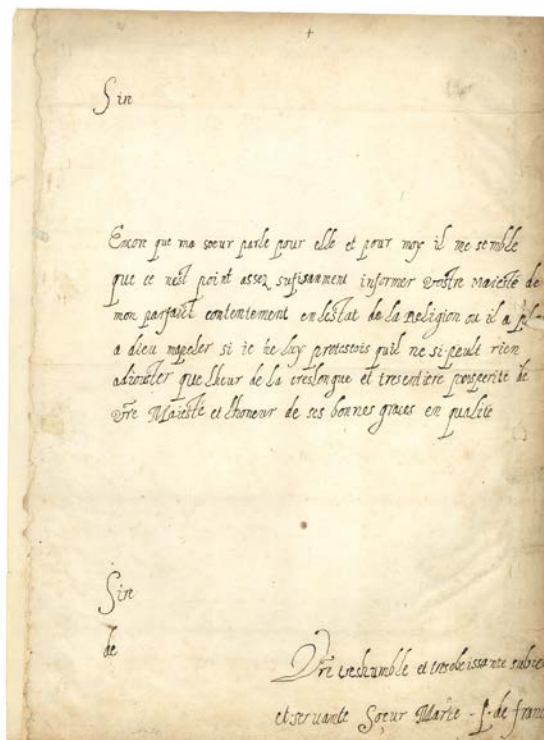 Sire
Encore que ma soeur parle pour elle et pour moy il me semble
que ce nest point assez sufisanment informer vostre Maiesté de
mon parfaict contentement en lestat de la Religion ou il a
a dieu mapeler si ie ne luy protestois quil ne si peult rien
adiouster que lheur de la treslongue et tresentiere prosperité de
vre Maiesté et lhoneur de ses bonnes graces en qualité
Sire
de
Vre treshumble et tresobeissante
et servante Soeur Marie